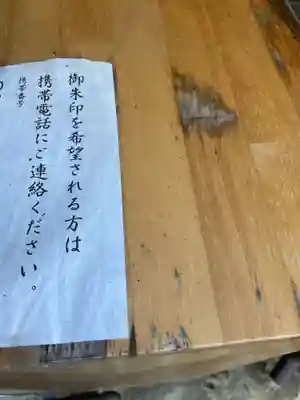 御朱印を希望される方は
携帯電話にご連絡ください。
携帯番号